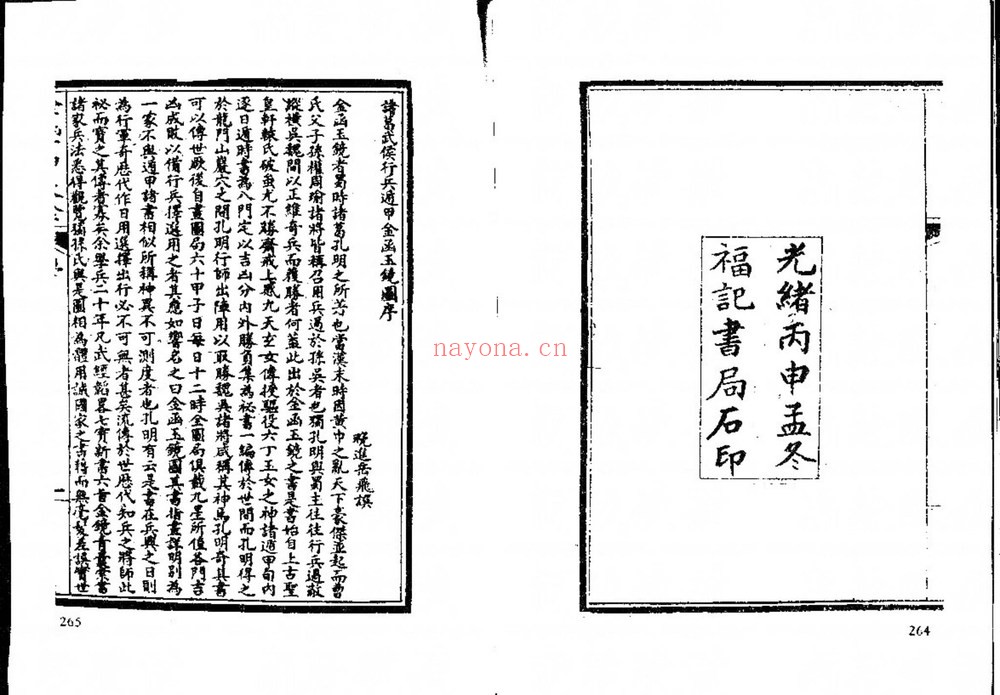 光緒丙申孟冬
福記書局石印
264
諸葛武侯行兵遁甲金函玉鏡圖序
晚進岳飛譔
金函玉鏡者蜀時諸葛孔明之所著也當漢末時因黃巾之亂天下豪傑並起而曹
氏父子孫權周瑜諸將皆稱召用兵過於孫吳者也獨孔明與蜀主往往行兵遇敵
蹤橫吳魏間以正維奇兵而獲勝者何蓋此出於金函玉鏡之書是書始自上古聖
皇軒轅氏破蚩尤不勝齋戒上感九天玄女傳授驅役六丁玉女之神諸遁甲旬內
逐日遁時書為八門定以吉凶分內外勝負集為祕書一編傳於世間而孔明得之
於龍門山巖穴之間孔明行師出陣用以取勝魏吳諸將咸稱其神焉孔明奇其書
可以傳世厥後自畫圖局六十甲子日每日十二時全圖局俱載九星所值各門吉
凶成敗以備行兵擇選用之者其應如響名之曰金函玉鏡圖其書指畫詳明別為
一家不與遁甲諸書相似所稱神異不可測度者也孔明有云是書在兵興之日則
為行軍奇歷代作日用選擇出行必不可無者甚矣流傳於世歷代知兵之將師此
祕而寶之其傳者寡矣余學兵二十年凡武經韜畧七寶新書六
諸家兵法悉得觀覽猶孫氏與是圖相為體用誠國家之書將而無毫髮差誤實世
一
265
nayona.cn